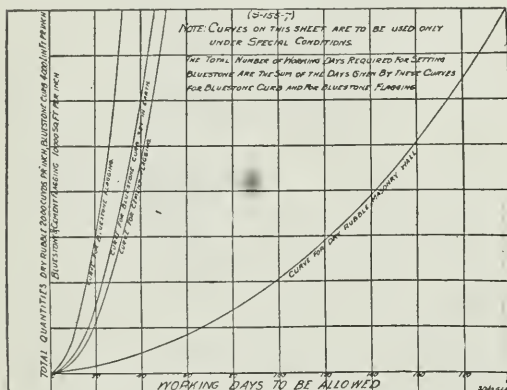 (S-155-7)
NOTE: CURVES ON THIS SHEET ARE TO BE USED ONLY
UNDER SPECIAL CONDITIONS.
THE TOTAL NUMBER OF WORKING DAYS REQUIRED FOR SETTING
BLUESTONE ARE THE SUM OF THE DAYS GIVEN BY THESE CURVES
FOR BLUESTONE CURB AND FOR BLUESTONE FLAGGING
TOTAL QUANTITIES DRY RUBBLE 2000 CU.YDS. PR INCH, BLUESTONE CURB 4000 LIN. FT. PER INCH
BLUESTONE & CEMENT FLAGGING 10000 SQ. FT. PER INCH
CURVE FOR BLUESTONE FLAGGING.
CURVE FOR BLUESTONE CURB SET IN EARTH
CURVE FOR CEMENT FLAGGING
CURVE FOR DRY RUBBLE MASONRY WALL
WORKING DAYS TO BE ALLOWED